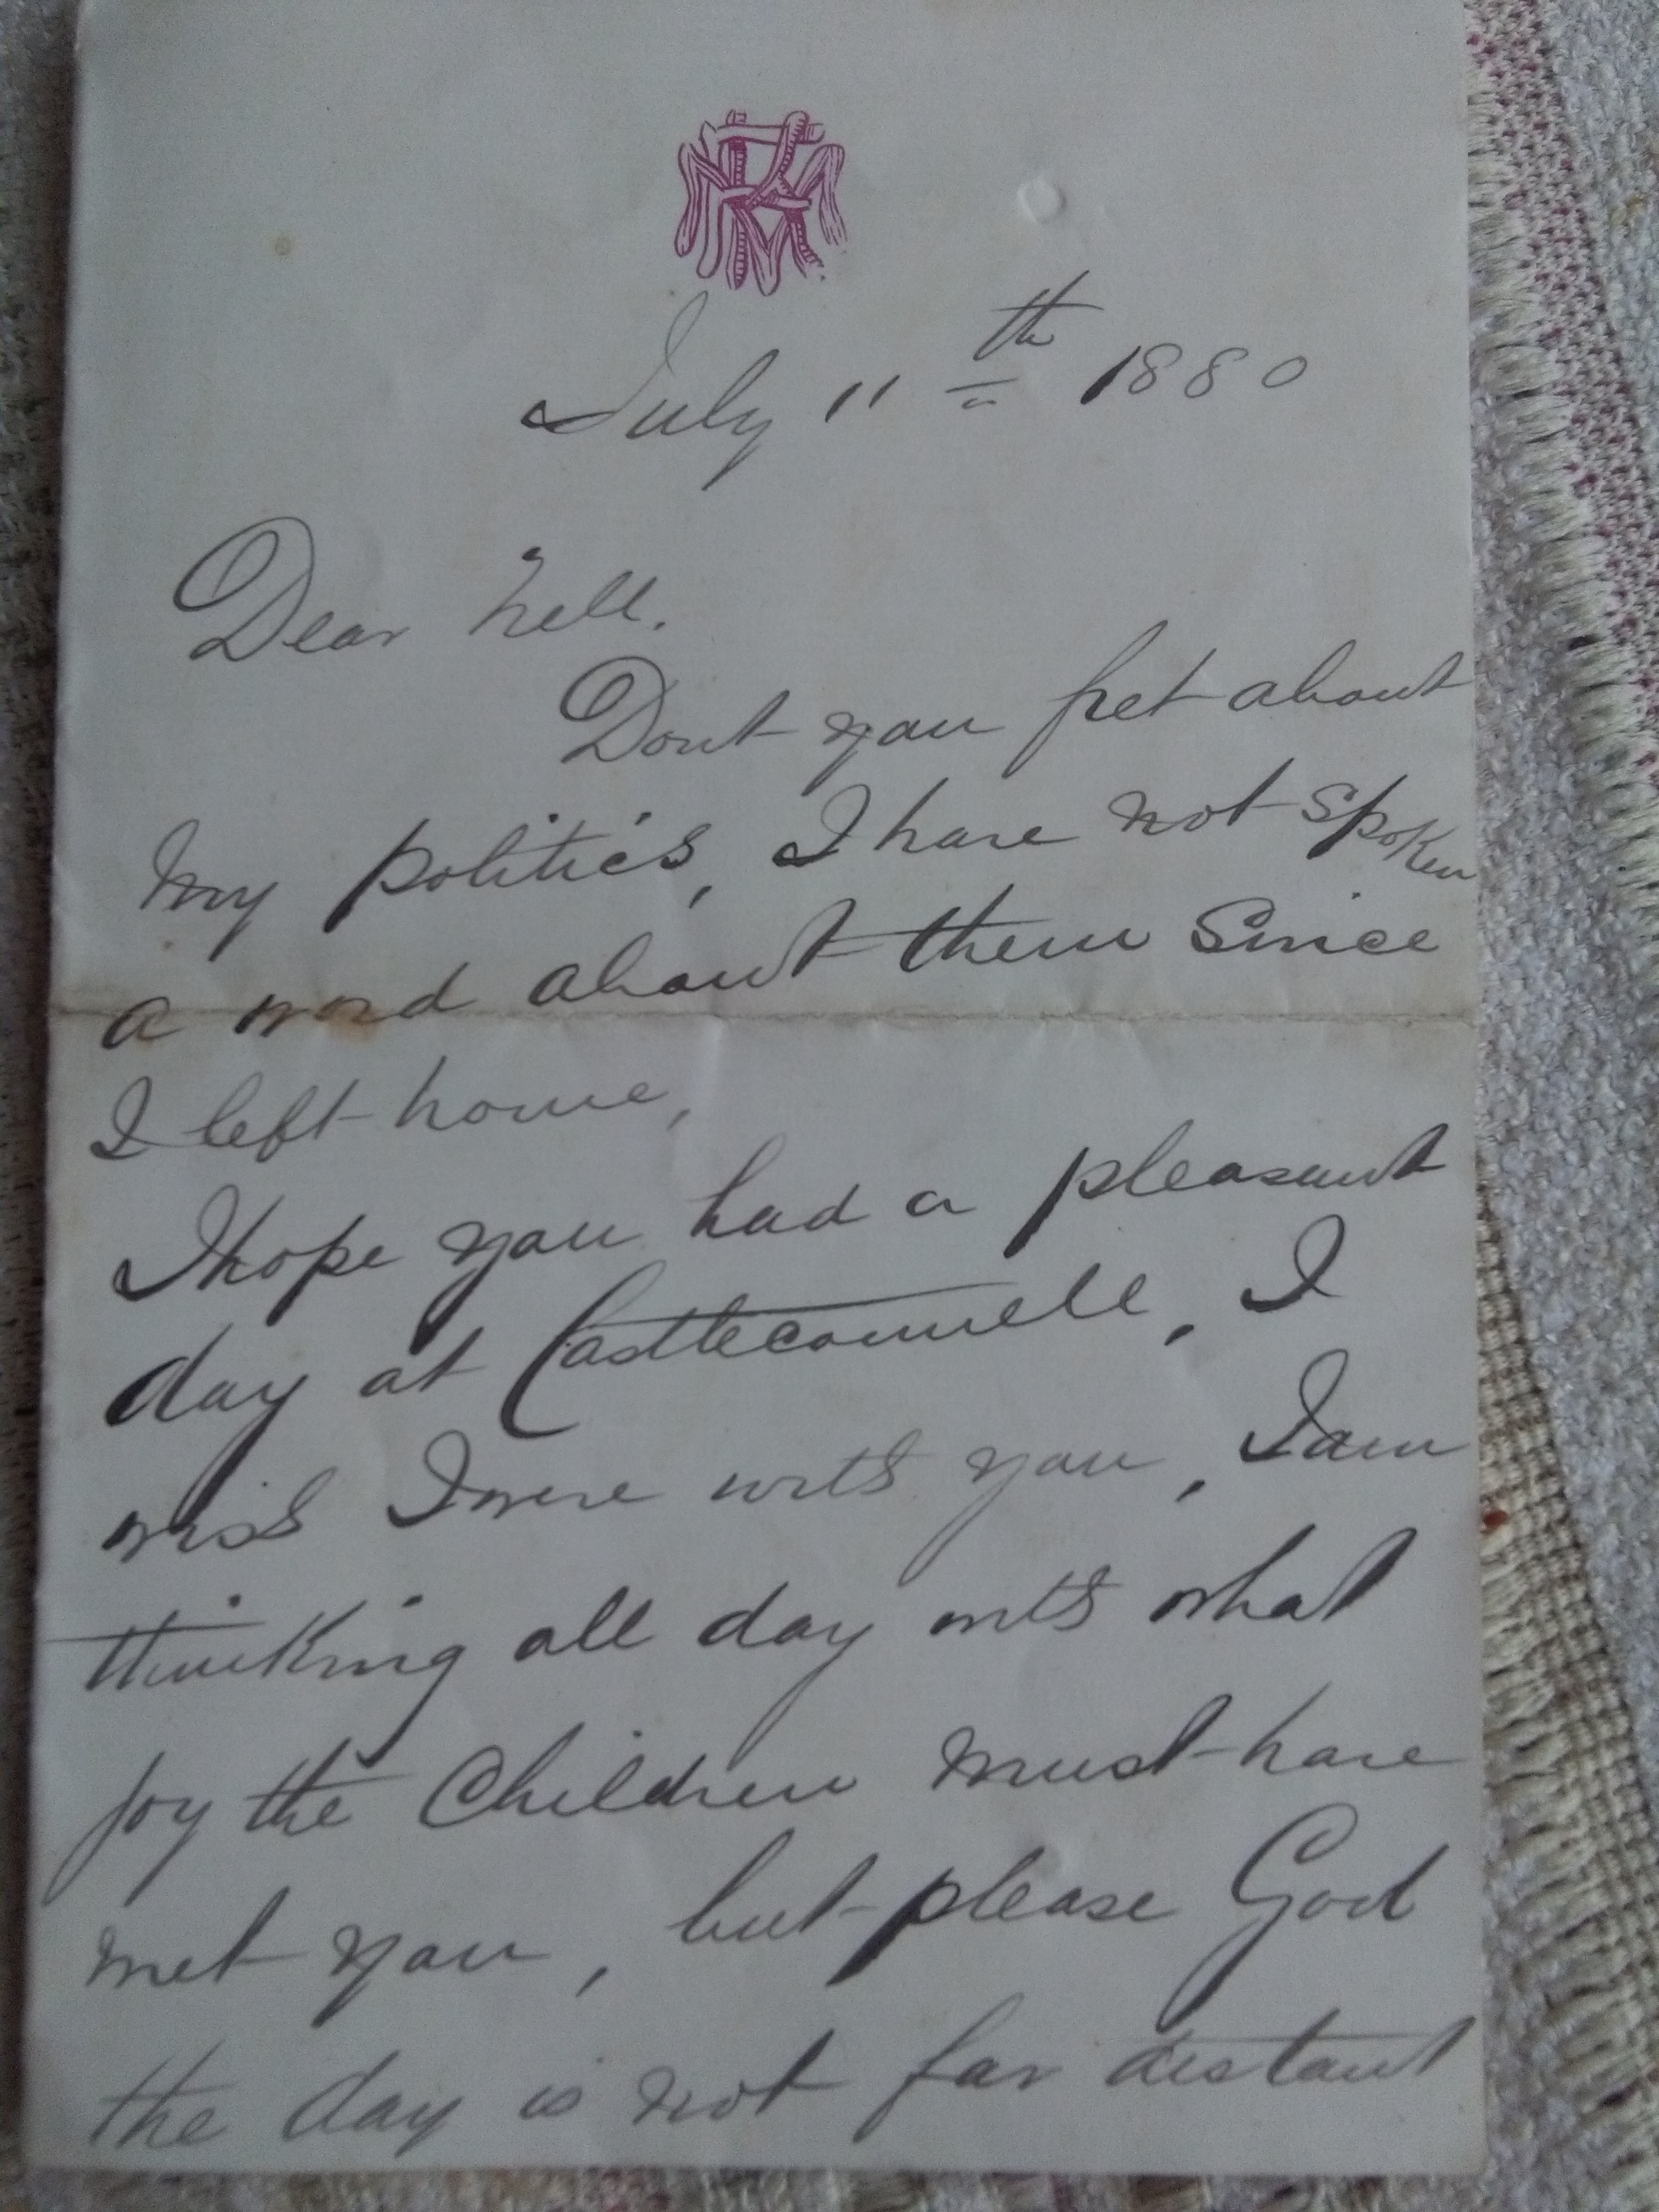 July 11th 1880
Dear Nell.
Dont you fret about
My politics, I have not spoken
a word about them Since
I left home,
I hope you had a pleasant
day at Castleconnell, I
wish I were with you, I am
thinking all day with what
joy the Children must have
met you, but please God
the day is not far distant